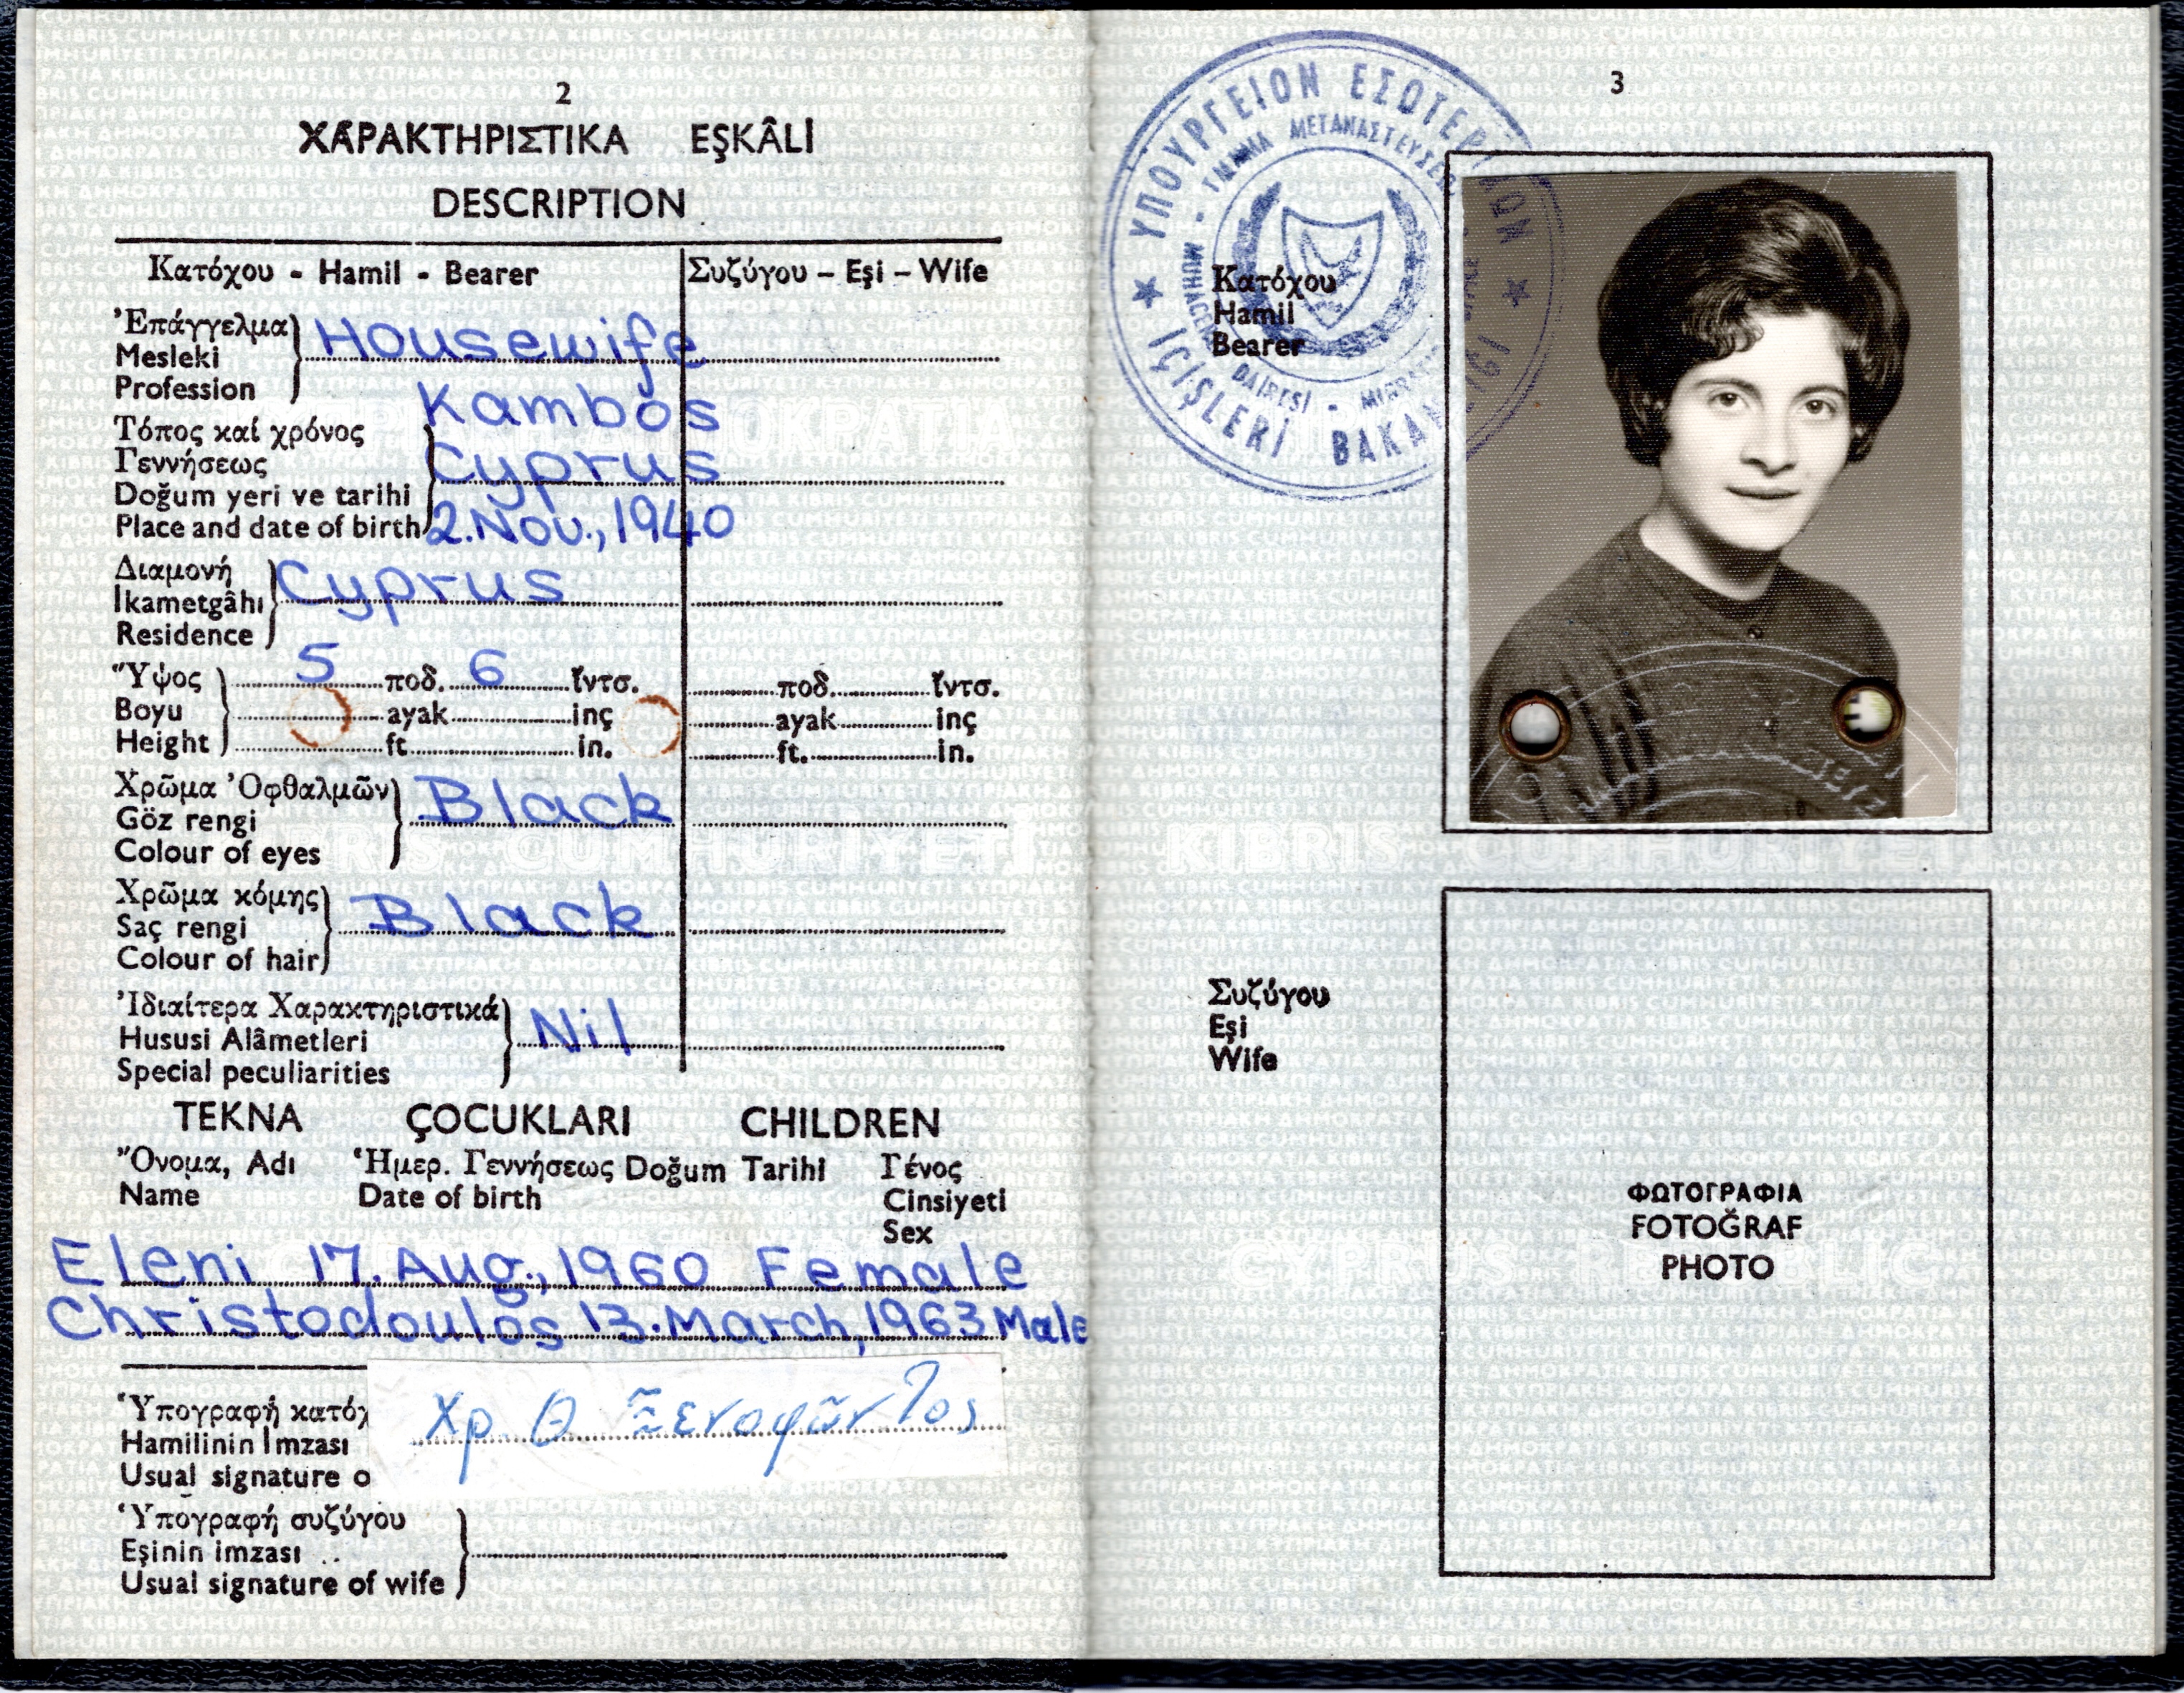 2
ΧΑΡΑΚΤΗΡΙΣΤΙΚΑ EŞKÂLİ
DESCRIPTION
Κατόχου - Hamil - Bearer
Συζύγου – Eşi – Wife
Ἐπάγγελμα
Mesleki
Profession
Housewife
Τόπος καί χρόνος
Γεννήσεως
Doğum yeri ve tarihi
Place and date of birth
Kambos
Cyprus
2.Nov.,1940
Διαμονή
İkametgâhı
Residence
Cyprus
Ὕψος 5 ποδ. 6 ἴντσ.
Boyu ayak inç
Height ft. in.
ποδ. ἴντσ.
ayak inç
ft. in.
Χρῶμα Ὀφθαλμῶν
Göz rengi
Colour of eyes
Black
Χρῶμα κόμης
Saç rengi
Colour of hair
Black
Ἰδιαίτερα Χαρακτηριστικά
Hususi Alâmetleri
Special peculiarities
Nil
ΤΕΚΝΑ ÇOCUKLARI CHILDREN
Ὄνομα, Adı Ἡμερ. Γεννήσεως Doğum Tarihi Γένος
Name Date of birth Cinsiyeti
Sex
Eleni 17.Aug.,1960 Female
Christodoulos 13.March,1963 Male
Ὑπογραφή κατόχ
Hamilinin İmzası
Usual signature o
Χρ Θ Ξενοφῶντος
Ὑπογραφή συζύγου
Eşinin imzası
Usual signature of wife
3
ΥΠΟΥΡΓΕΙΟΝ ΕΣΩΤΕΡΙΚΩΝ
ΤΜΗΜΑ ΜΕΤΑΝΑΣΤΕΥΣΕΩΣ
İÇİŞLERİ BAKANLIĞI
Κατόχου
Hamil
Bearer
Συζύγου
Eşi
Wife
ΦΩΤΟΓΡΑΦΙΑ
FOTOĞRAF
PHOTO
KIBRIS CUMHURİYETİ
CYPRUS REPUBLIC